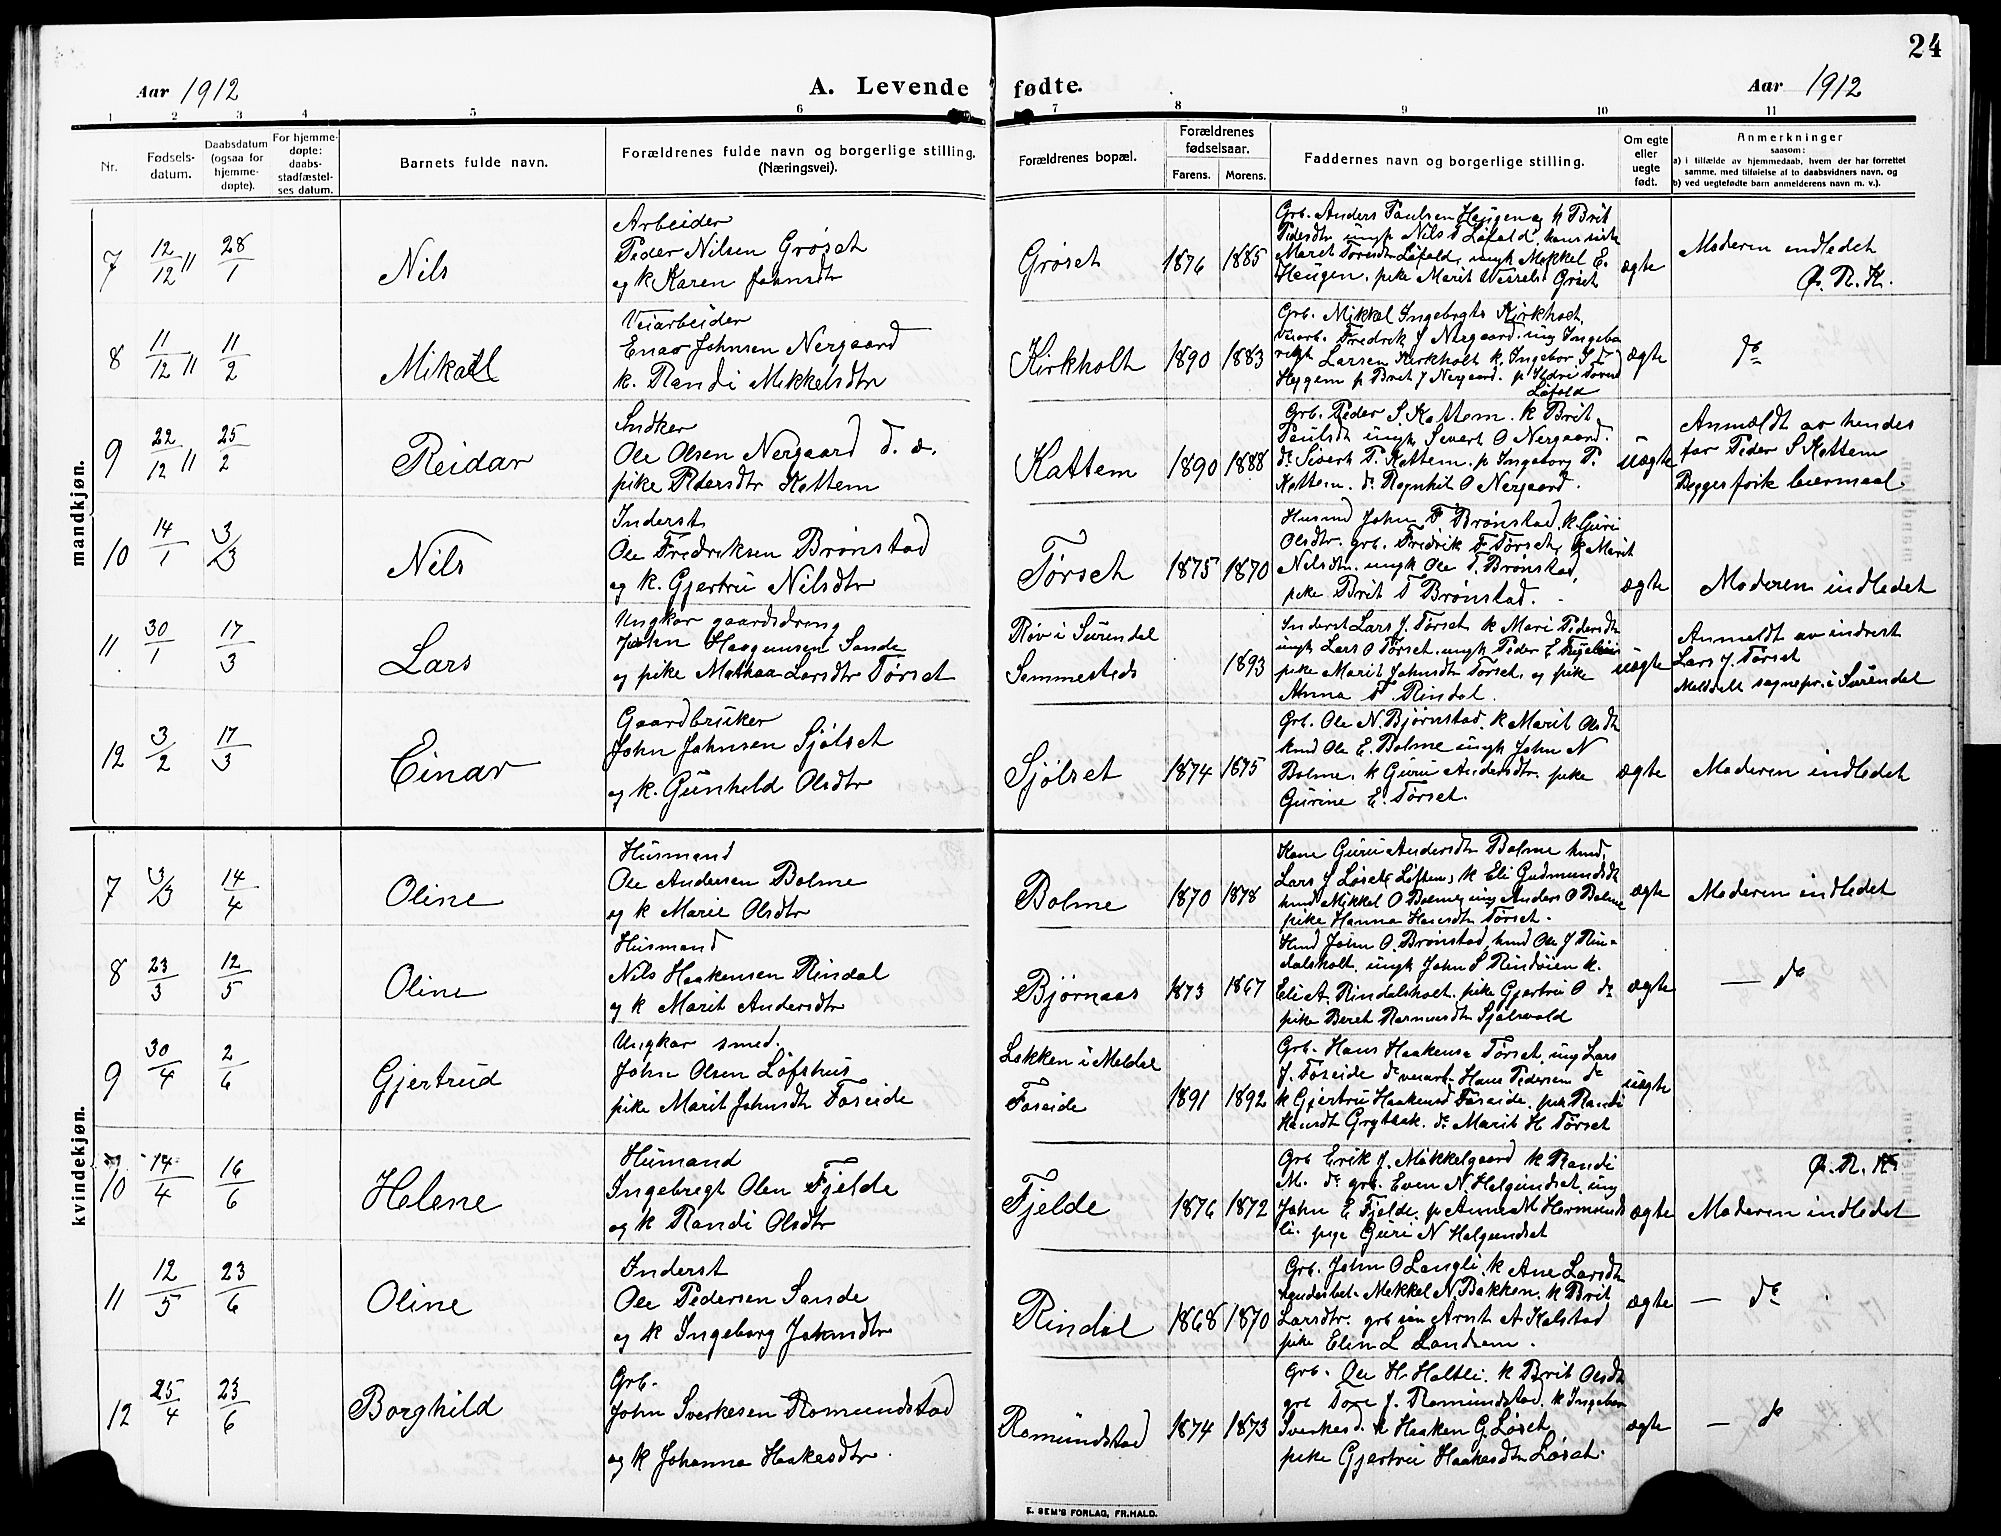 24
Aar 1912
A. Levende fødte.
Aar 1912
1 2 3 4 5 6 7 8 9 10 11
Nr.
Fødsels-
datum.
Daabsdatum
(ogsaa for
hjemme-
døpte).
For hjemme-
døpte:
daabs-
stadfæstel-
ses datum.
Barnets fulde navn.
Forældrenes fulde navn og borgerlige stilling.
(Næringsvei).
Forældrenes bopæl.
Forældrenes
fødselsaar.
Farens. Morens.
Faddernes navn og borgerlige stilling.
Om egte
eller
uegte
født.
Anmerkninger
saasom:
a) i tilfælde av hjemmedaab, hvem der har forrettet
samme, med tilføielse af to daabsvidners navn, og
b) ved uegtefødte barn anmelderens navn m. v.).
mandkjøn.
7
12/12 11
28/1
Nils
Arbeider
Peder Nilsen Grøset
og k Karen Johnsdt
Grøset
1876 1885
Grb. Anders Paulsen Heggem og k Brit
Pedersdtr ungk Nils T Løfald, hans søster
Marit Toresdtr Løfald, ungk Mekkel E.
Haugen, pike Marit Wessels Grøset
ægte
Moderen indledet
O. R. K.
8
11/12 11
11/2
Mikael
Veiarbeider
Enar Johnsen Nergaard
k. Randi Mikkelsdtr
Kirkholt
1890 1883
Grb. Mikkel Ingebrgts Kirkholt,
veiarb. Fredrik J Nergaard. ung Ingeb
rigt Larsen Kirkholt k. Ingebor
Heggem p Brit J Nergaard. p Ildri Tores
Løfald
ægte
do
9
22/12 11
25/2
Reidar
Sndker
Ole Olsen Nergaard d. æ.
pike Pedersdtr Kattem
Kattem
1890 1888
Grb. Peder S. Kattem. k Brit
Paulsdt ungk Sivert O Nergaard.
do Sivert P. Kattem. p Ingeborg P.
Kattem. do Ragnhil O Nergaard.
uægte
Anmældt av hendes
far Peder S Kattem
Begges første leiermaal.
10
14/1
3/3
Nils
Inderst
Ole Fredriksen Brønstad
og k. Gjertru Nilsdtr
Tørset
1875 1870
Husmd John F Brønstad, k Guri
Olsdtr. grb. Fredrik F Tørset, k Marit
Nilsdtr. ungk Ole T. Brønstad,
pike Brit T Brønstad.
ægte
Moderen indledet
11
30/1
17/3
Lars
Ungkar gaardsdreng
John Haagensen Sande
og pike Mathea Larsdtr Tørset
Røv i Surendal
Semmesteds
1893
Inderst Lars J. Tørset k Mari Pedersdtr
ungk Lars O Tørset. ungk Peder E
pike Marit Johnsdt Tørset, og pike
Anna F. Rindal.
uægte
Anmeldt av inderst
Lars J. Tørset
Meldelt sognepr. i Surendal
12
3/2
17/3
Einar
Gaardbruker
John Johnsen Sjølset
og k. Gunhild Olsdtr
Sjølset
1874 1875
Grb. Ole N. Bjørnstad. k Marit Olsdt
hmd Ole E. Bolme ungk John N
Bolme. k Guru Andersdtr. pike
Gurine E. Tørset.
ægte
Moderen indledet
kvindekjøn.
7
3/3
14/4
Oline
Husmand
Ole Andersen Bolme
og k Marie Olsdtr
Bolme
1870 1878
Kone Guru Andersdtr Bolme hmd.
Lars J Løset (Løften) k Eli Gudmundsdt
hmd Mikkel O Bolme, ung Anders O Bolme
pike Hanna Hansdtr Tørset.
ægte
Moderen indledet
8
23/3
12/5
Oline
Husmand
Nils Haakensen Rindal
og k Marit Andersdtr
Bjørnaas
1873 1867
Hmd John O. Brønstad, hmd Ole J Rin-
dalsholt. ungk John S Rindøien k.
Eli A. Rindalsholt. pike Gjertru O do
pike Beret Rasmusdtr Sjølsvold
ægte
— do
9
30/4
2/6
Gjertrud
Ungkar smed.
John Olsen Løfshus
pike Marit Johnsdtr Foseide
Løkken i Meldal
Foseide
1891 1892
Grb. Hans Haakensn Tørset, ung Lars
J. Foseide do veiarb. Hans Pedersen do
k Gjertru Haakensd Foseide. pike Randi
Hansdt Grytbak. do Marit H Tørset
uægte
10
14/4
16/6
Helene
Husmand
Ingebregt Olsen Fjelde
og k Randi Olsdtr
Fjelde
1876 1872
Grb Erik J. Mikkelgaard k Randi
M. do grb. Even N. Helgundset, ung
John E Fjelde. p Anne M Hermunds
li. pige Guri N Helgundset
ægte
O. R. K.
Moderen indledet
11
12/5
23/6
Oline
Inderst
Ole Pedersen Sande
og k Ingeborg Johnsdtr
Rindal
1868 1870
Grb. John O Langli. k Ane Larsdtr
handesbet. Mekkel N. Bakken. k Brit
Larsdtr. grb søn Arnt A Kalstad
pike Elen L Landsem.
ægte
— do
12
25/4
23/6
Borghild
Grb.
John Sverkesen Romundstad
og k Johanna Haakesdtr.
Romundstad
1874 1873
Grb. Ole H. Holtli. k Brit Olsdt
grb Tore J. Romundstad. k Ingebor
Sverkesd. k Haaken G. Løset
pike Gjertru Haakesdtr Løset.
ægte
— do
E. SEM'S FORLAG, FR.HALD.